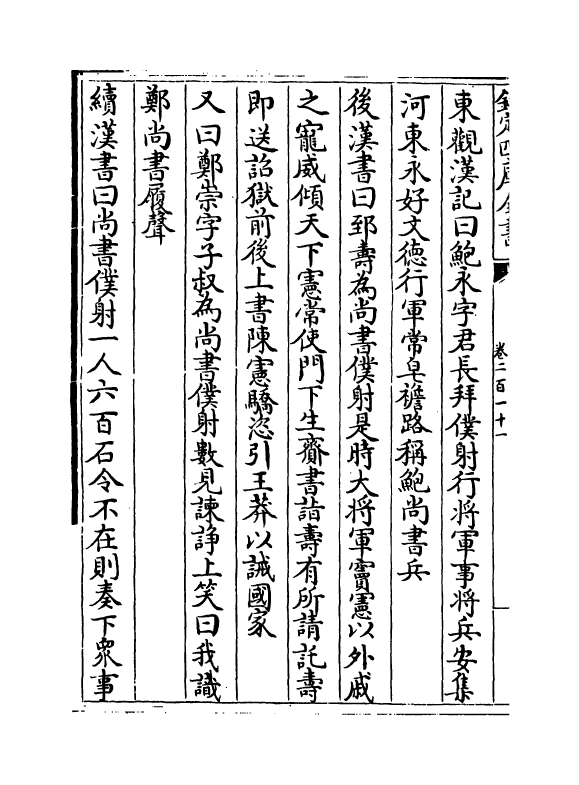 欽定四庫全書
卷二百一十一
東觀漢記曰鮑永字君長拜僕射行将軍事将兵安集
河東永好文德行軍常皁襜路稱鮑尚書兵
後漢書曰郅壽為尚書僕射是時大将軍竇憲以外戚
之寵威傾天下憲常使門下生齎書詣壽有所請託壽
即送詔獄前後上書陳憲驕恣引王莽以誡國家
又曰鄭崇字子叔為尚書僕射數見諫諍上笑曰我識
鄭尚書履聲
續漢書曰尚書僕射一人六百石令不在則奏下衆事